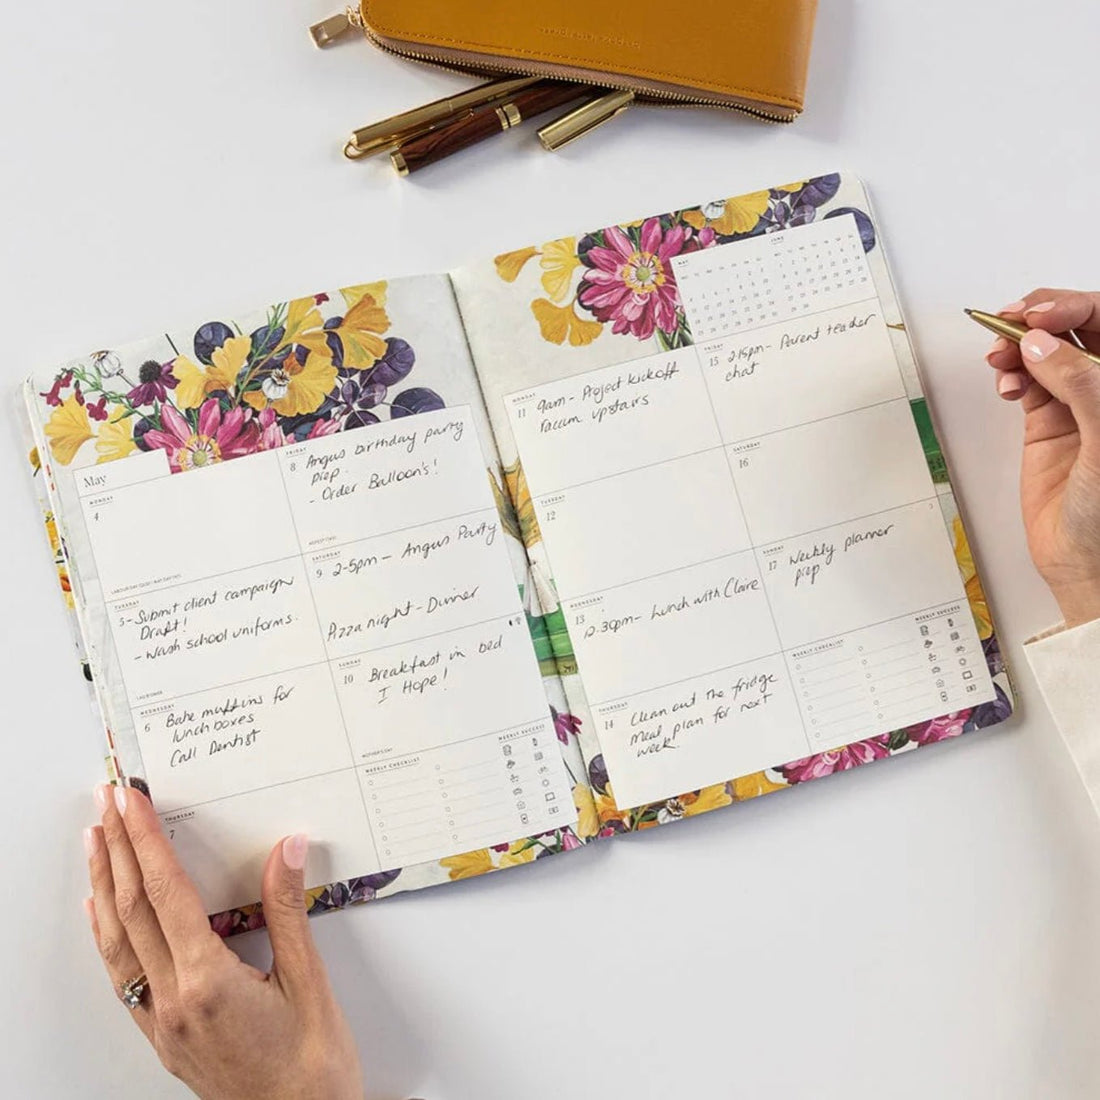 May
MONDAY
4
LABOUR DAY (QLD) | MAY DAY (NT)
TUESDAY
5 - Submit client campaign
Draft!
- wash school uniforms.
WEDNESDAY
6 Bake muffins for
lunchboxes
Call Dentist
THURSDAY
7
FRIDAY
8 Angus birthday party
prep.
- Order Balloon's!
SATURDAY
9 2-5pm - Angus Party
Pizza night - Dinner
SUNDAY
10 Breakfast in bed
I Hope!
MOTHER'S DAY
WEEKLY CHECKLIST
WEEKLY SUCCESS
MAY
JUNE
MONDAY
11 9am - Project kickoff
vaccum upstairs
TUESDAY
12
WEDNESDAY
13
12.30pm - Lunch with Claire
THURSDAY
14 Clean out the fridge
Meal plan for next
week.
FRIDAY
15 2:15pm - Parent teacher
chat
SATURDAY
16
SUNDAY
17 Weekly planner
prep
WEEKLY CHECKLIST
WEEKLY SUCCESS